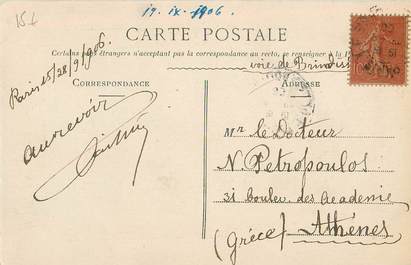 15 €
19. ix. 1906.
CARTE POSTALE
Certains pays étrangers n'acceptant pas la correspondance au recto, se renseigner à la
voie de Brindisi
CORRESPONDANCE
ADRESSE
Paris 15/28/9/1906.
au revoir
Mr le Docteur
N. Petropoulos
31 boulev. des Academie
(Grèce) Athènes